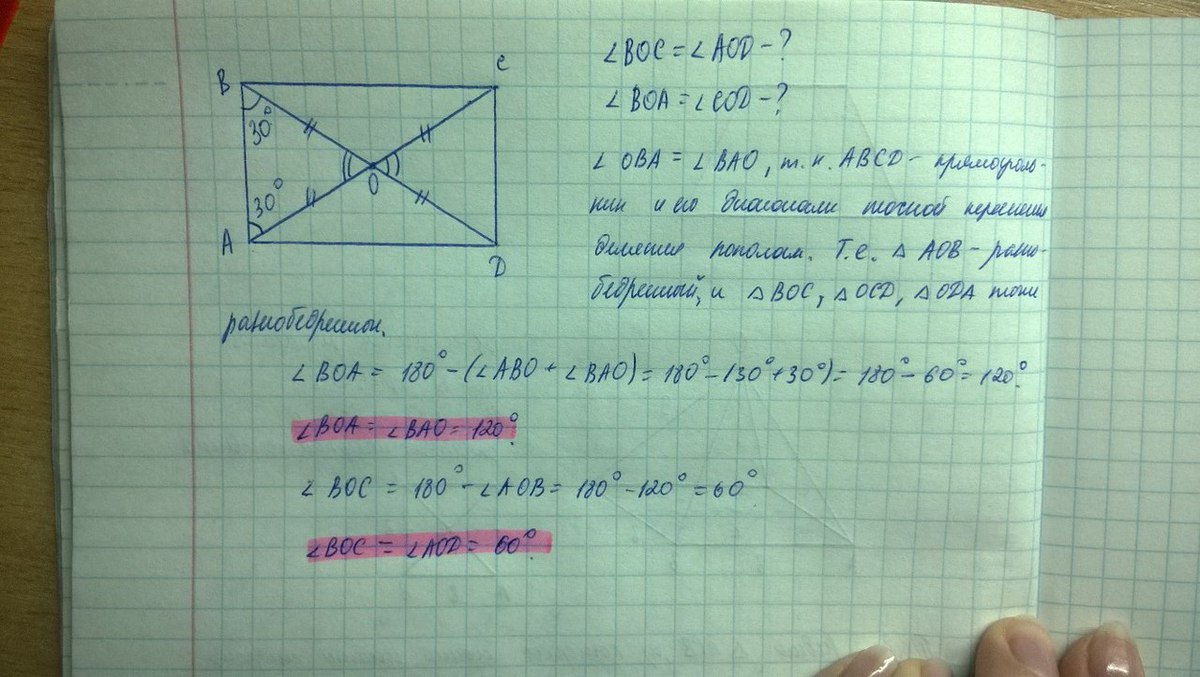 B
C
30°
30°
O
A
D
∠BOC = ∠AOD - ?
∠BOA = ∠COD - ?
∠OBA = ∠BAO, т.к. ABCD - прямоуголь-
ник и его диагонали точкой пересечения
делятся пополам. Т.е. △AOB - равно-
бедренный, и △BOC, △OCD, △ODA тоже
равнобедрен.
∠BOA = 180° - (∠ABO + ∠BAO) = 180° - (30° + 30°) = 180° - 60° = 120°.
∠BOA = ∠BAO = 120°.
∠BOC = 180° - ∠AOB = 180° - 120° = 60°
∠BOC = ∠AOD = 60°.